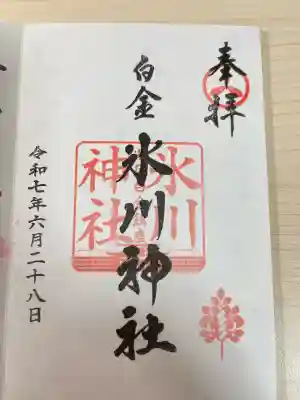 奉拝
白金
氷川神社
氷川
神社
令和七年六月二十八日